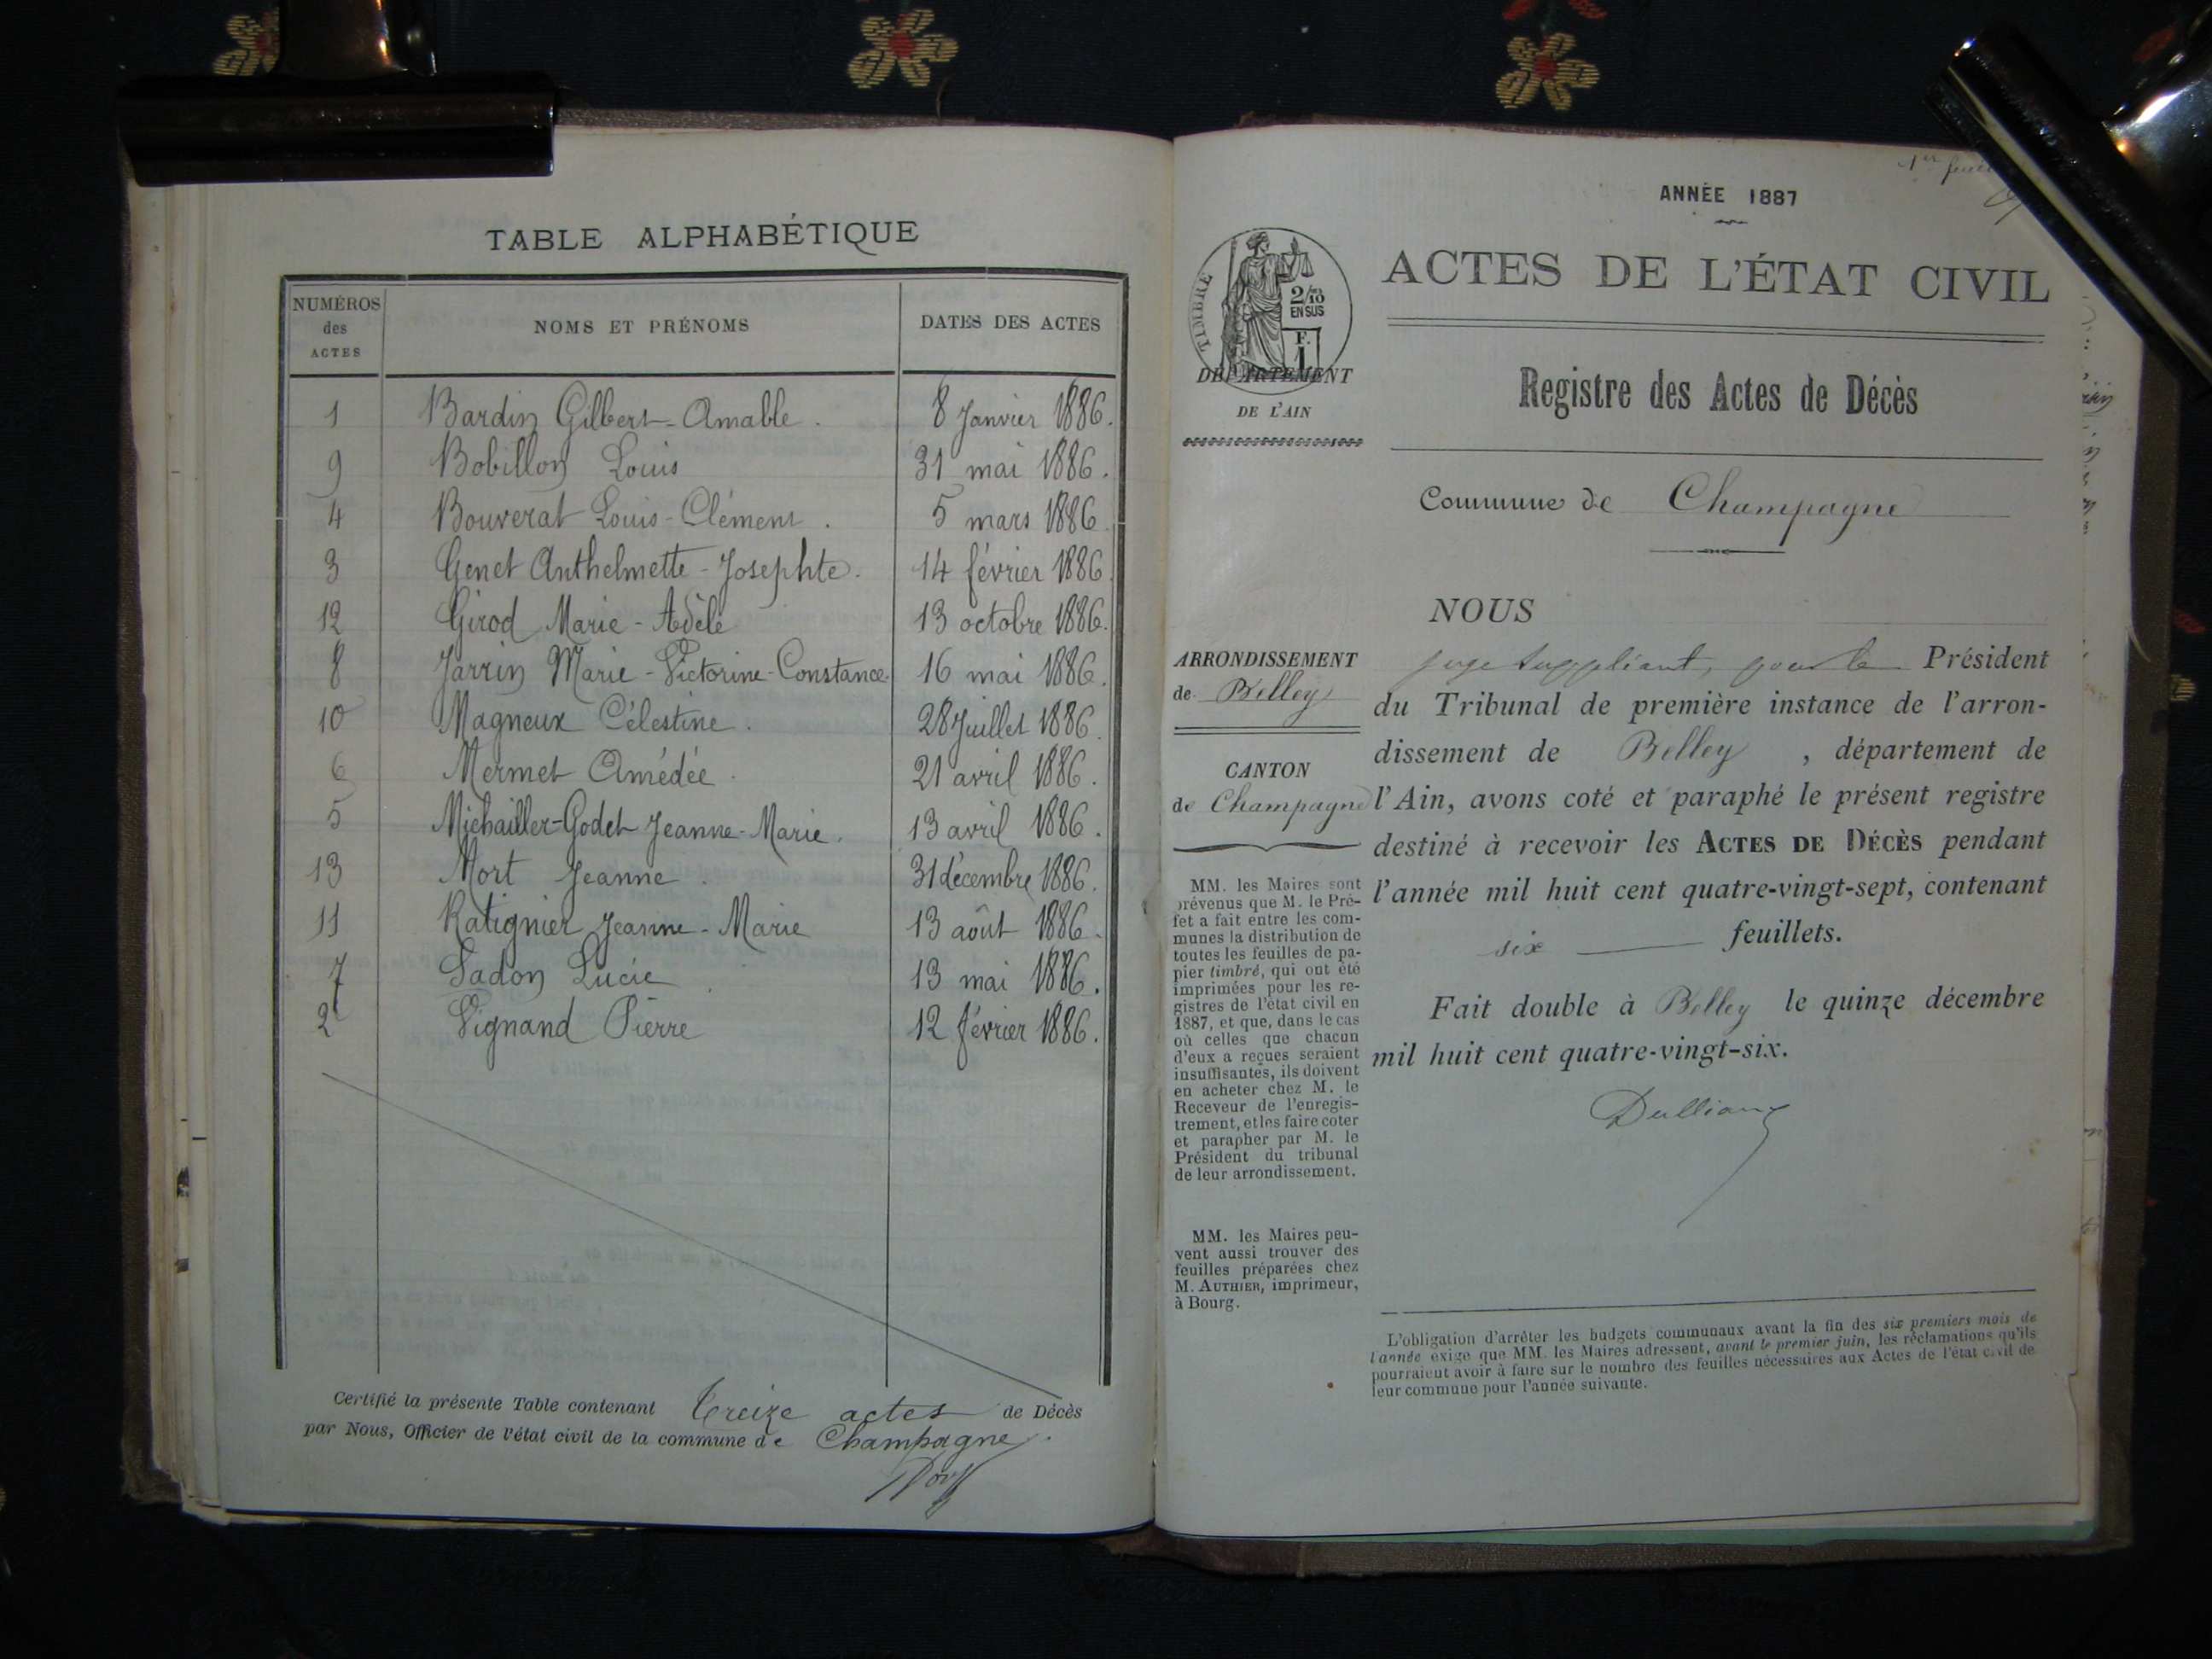 TABLE ALPHABÉTIQUE
NUMÉROS des ACTES NOMS ET PRÉNOMS DATES DES ACTES
1 Bardin Gilbert-Amable. 8 Janvier 1886.
9 Bobillon Louis 31 mai 1886.
4 Bouverat Louis-Clément. 5 mars 1886
3 Genet Anthelmette-Josephte. 14 février 1886
12 Girod Marie-Adèle 13 octobre 1886.
8 Jarrin Marie-Victorine-Constance. 16 mai 1886.
10 Magneux Célestine. 28 Juillet 1886.
6 Mermet Amédée. 21 avril 1886.
5 Michaillet-Godet Jeanne-Marie. 13 avril 1886.
13 Mort Jeanne. 31 décembre 1886.
11 Ratignier Jeanne-Marie 13 août 1886.
7 Sadon Lucie. 13 mai 1886.
2 Vignand Pierre 12 février 1886.
Certifié la présente Table contenant treize actes de Décès
par Nous, Officier de l'état civil de la commune de Champagne.
1er
ANNÉE 1887
ACTES DE L'ÉTAT CIVIL
TIMBRE
2/10
EN SUS
F.
1
DÉPARTEMENT
DE L'AIN
Registre des Actes de Décès
Commune de Champagne
ARRONDISSEMENT
de Belley
CANTON
de Champagne
MM. les Maires sont
prévenus que M. le Pré-
fet a fait entre les com-
munes la distribution de
toutes les feuilles de pa-
pier timbré, qui ont été
imprimées pour les re-
gistres de l'état civil en
1887, et que, dans le cas
où celles que chacun
d'eux a reçues seraient
insuffisantes, ils doivent
en acheter chez M. le
Receveur de l'enregis-
trement, et les faire coter
et parapher par M. le
Président du tribunal
de leur arrondissement.
MM. les Maires peu-
vent aussi trouver des
feuilles préparées chez
M. AUTHIER, imprimeur,
à Bourg.
NOUS
juge suppléant, pour le Président
du Tribunal de première instance de l'arron-
dissement de Belley, département de
l'Ain, avons coté et paraphé le présent registre
destiné à recevoir les ACTES DE DÉCÈS pendant
l'année mil huit cent quatre-vingt-sept, contenant
six feuillets.
Fait double à Belley le quinze décembre
mil huit cent quatre-vingt-six.
L'obligation d'arrêter les budgets communaux avant la fin des six premiers mois de
l'année exige que MM. les Maires adressent, avant le premier juin, les réclamations qu'ils
pourraient avoir à faire sur le nombre des feuilles nécessaires aux Actes de l'état civil de
leur commune pour l'année suivante.